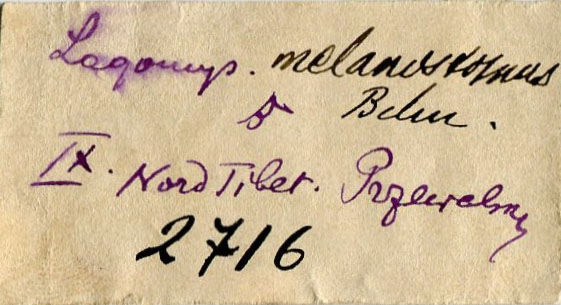 Lagomys. melanostomus
Bchn.
IX. Nord Tibet. Przewalsky
2716